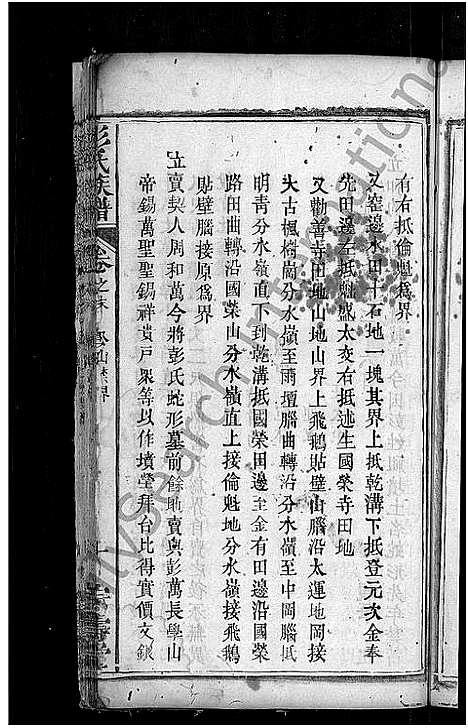 右右抵倫魁爲界
又窑邊水田十石地一塊其界上抵乾溝下抵登元次金奉
先田邊左抵魁盛太交右抵述生國榮寺田地
又勸善寺田地山地山界上飛鵝貼壁山腦沿太運地岡接
大古楓樹崗分水嶺至雨壇腦曲轉沿分水嶺至中岡腦抵
明青分水嶺直下到乾溝抵國榮田邊至金有田邊沿國榮
路田曲轉沿國榮山分水嶺直上接倫魁地分水嶺接飛鵝
貼壁腦接原爲界
立賣契人周和萬今將彭氏蛇形墓前餘地賣與彭萬長學山
帝錫萬聖聖錫祥貴戸衆等以作墳塋拜台比得實價文銀
彭氏族譜
卷之末
山禁界